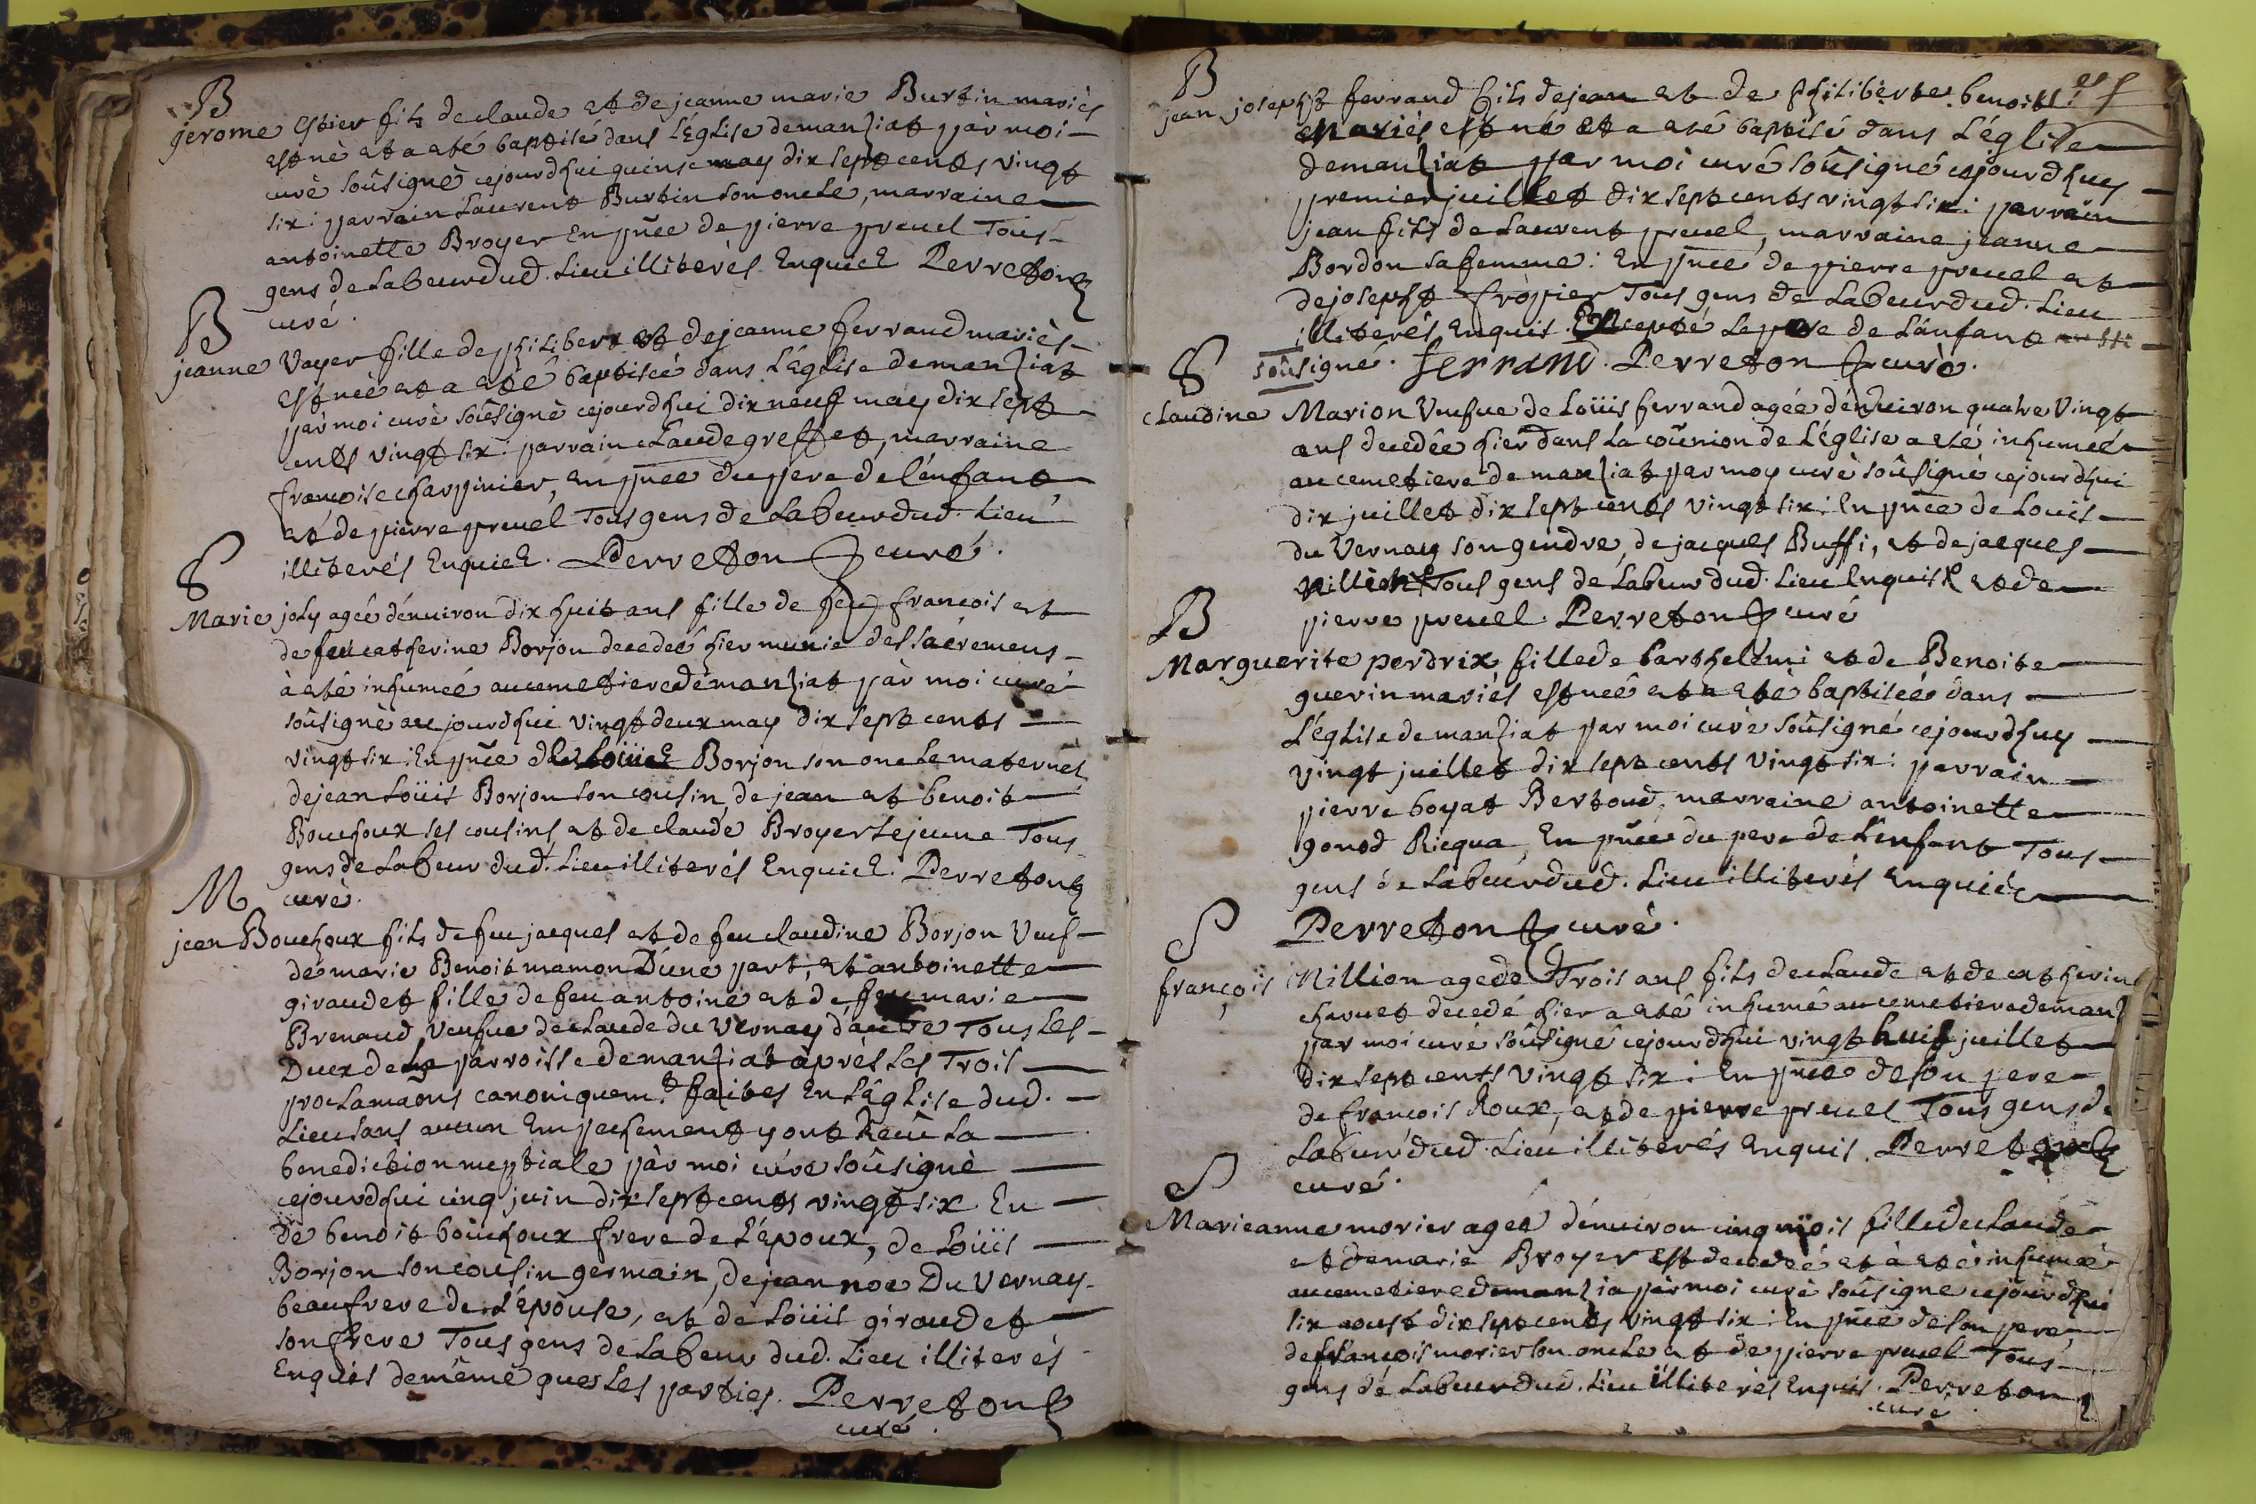 B
jerome estier fils de claude et de jeanne marie Burtin mariés
est né et a eté baptisé dans L'église de manziat par moi
curé soûsigné cejourdhui quinse may dix sept cents vingt
six: parrain Laurent Burtin son oncle, marraine
antoinette Broyer En pñce de pierre preuel Tous
gens de Labeur dud. Lieu illiterés Enquis Perreton
curé.
B
jeanne Vayer fille de philibert et de jeanne ferrand mariés
est née et a eté baptisée dans L'église de manziat
par moi curé soûsigné cejourdhui dix neuf may dix sept
cents vingt six: parrain claude greffet, marraine
françoise charpinier, en pñce du pere de l'enfant,
et de pierre preuel Tous gens de Labeur dud. Lieu
illiterés Enquis. Perreton curé.
S
Marie joly ageé dénuiron dix huit ans fille de feu françois et
de feu catherine Borjon decedeé hier munie des sacremens
à eté inhumeé au cemetiere de manziat par moi curé
soûsigné aujourdhui vingt deux may dix sept cents
vingt six: En pñce de Loüis Borjon son oncle maternel,
de jean Loüis Borjon son cousin, de jean et benoit
Bouchoux ses cousins et de claude Broyer Lejeune Tous
gens de Labeur dud. Lieu illiterés Enquis. Perreton
curé.
M
jean Bouchoux fils de feu jacques et de feu claudine Borjon Veuf
de marie Benoit mamon D'une part, et antoinette
giraudet fille de feu antoine et de feu marie
Brenaud Veufue de claude du Vernay d'autre Tous Les
Deux de La parroisse de manziat après Les Trois
proclamaõns canoniquem.t faites En L'église dud.
Lieu sans aucun Empechement y ont Receü La
benediction nuptiale par moi curé soûsigné
cejourdhui cinq juin dix sept cents vingt six En
de benoit bouchoux frere de L'époux, de Loüis
Borjon son cousin germain, de jean noe Du Vernay
beaufrere de L'épouse, et de Loüis giraudet
son frere Tous gens de Labeur dud. Lieu illiterés
Enquis demême que Les parties. Perreton
curé.
B
jean joseph ferrand fils de jean et de philiberte benoit
Mariés est né et a eté baptisé dans L'église
de manziat par moi curé soûsigné cejourdhuy
premier juillet dix sept cents vingt six: parrain
jean fils de Laurent preuel, marraine jeanne
Bordon sa femme: En pñce de pierre preuel et
de joseph fropier Tous gens de Labeur dud. Lieu
illiterés Enquis. Excepté Le pere de L'enfant
soûsigné. ferrand. Perreton curé.
S
claudine Marion Veufue de Loüis ferrand agée dénuiron quatre Vingt
ans decedée hier dans La coũnion de L'église a eté inhumeé
au cemetiere de manziat par moy curé soûsigné cejourdhui
dix juillet dix sept cents vingt six: En pñce de Louis
du Vernay son gendre, de jacques Buffi, et de jacques
Tous gens de Labeur dud. Lieu Enquis et de
pierre preuel. Perreton curé
B
Marguerite perdrix fille de barthelemi et de Benoite
guerin mariés est neé et a eté baptiseé dans
L'église de manziat par moi curé soûsigné cejourdhuy
vingt juillet dix sept cents vingt six: parrain
pierre boyat Bertoud, marraine antoinette
gonod Ricqua, En pñce du pere de L'enfant Tous
gens de Labeur dud. Lieu illiterés Enquis
Perreton curé.
S
françois Million agé de Trois ans fils de claude et de catherine
charuet decedé hier a eté inhumé au cemetiere de manz
par moi curé soûsigné cejourdhui vingt huit juillet
dix sept cents vingt six: En pñce de son pere
de françois Roux, et de pierre preuel Tous gens de
Labeur dud. Lieu illiterés Enquis. Perreton
curé.
S
Marieanne morier ageé dénuiron cinq mois fille de claude
et de marie Broyer est decedeé et à eté inhumeé
au cemetiere de manzia par moi curé soûsigné cejourdhui
six aoust dix sept cents vingt six: En pñce de son pere,
de françois morier son oncle et de pierre preuel Tous
gens de Labeur dud. Lieu illiterés Enquis. Perreton
curé